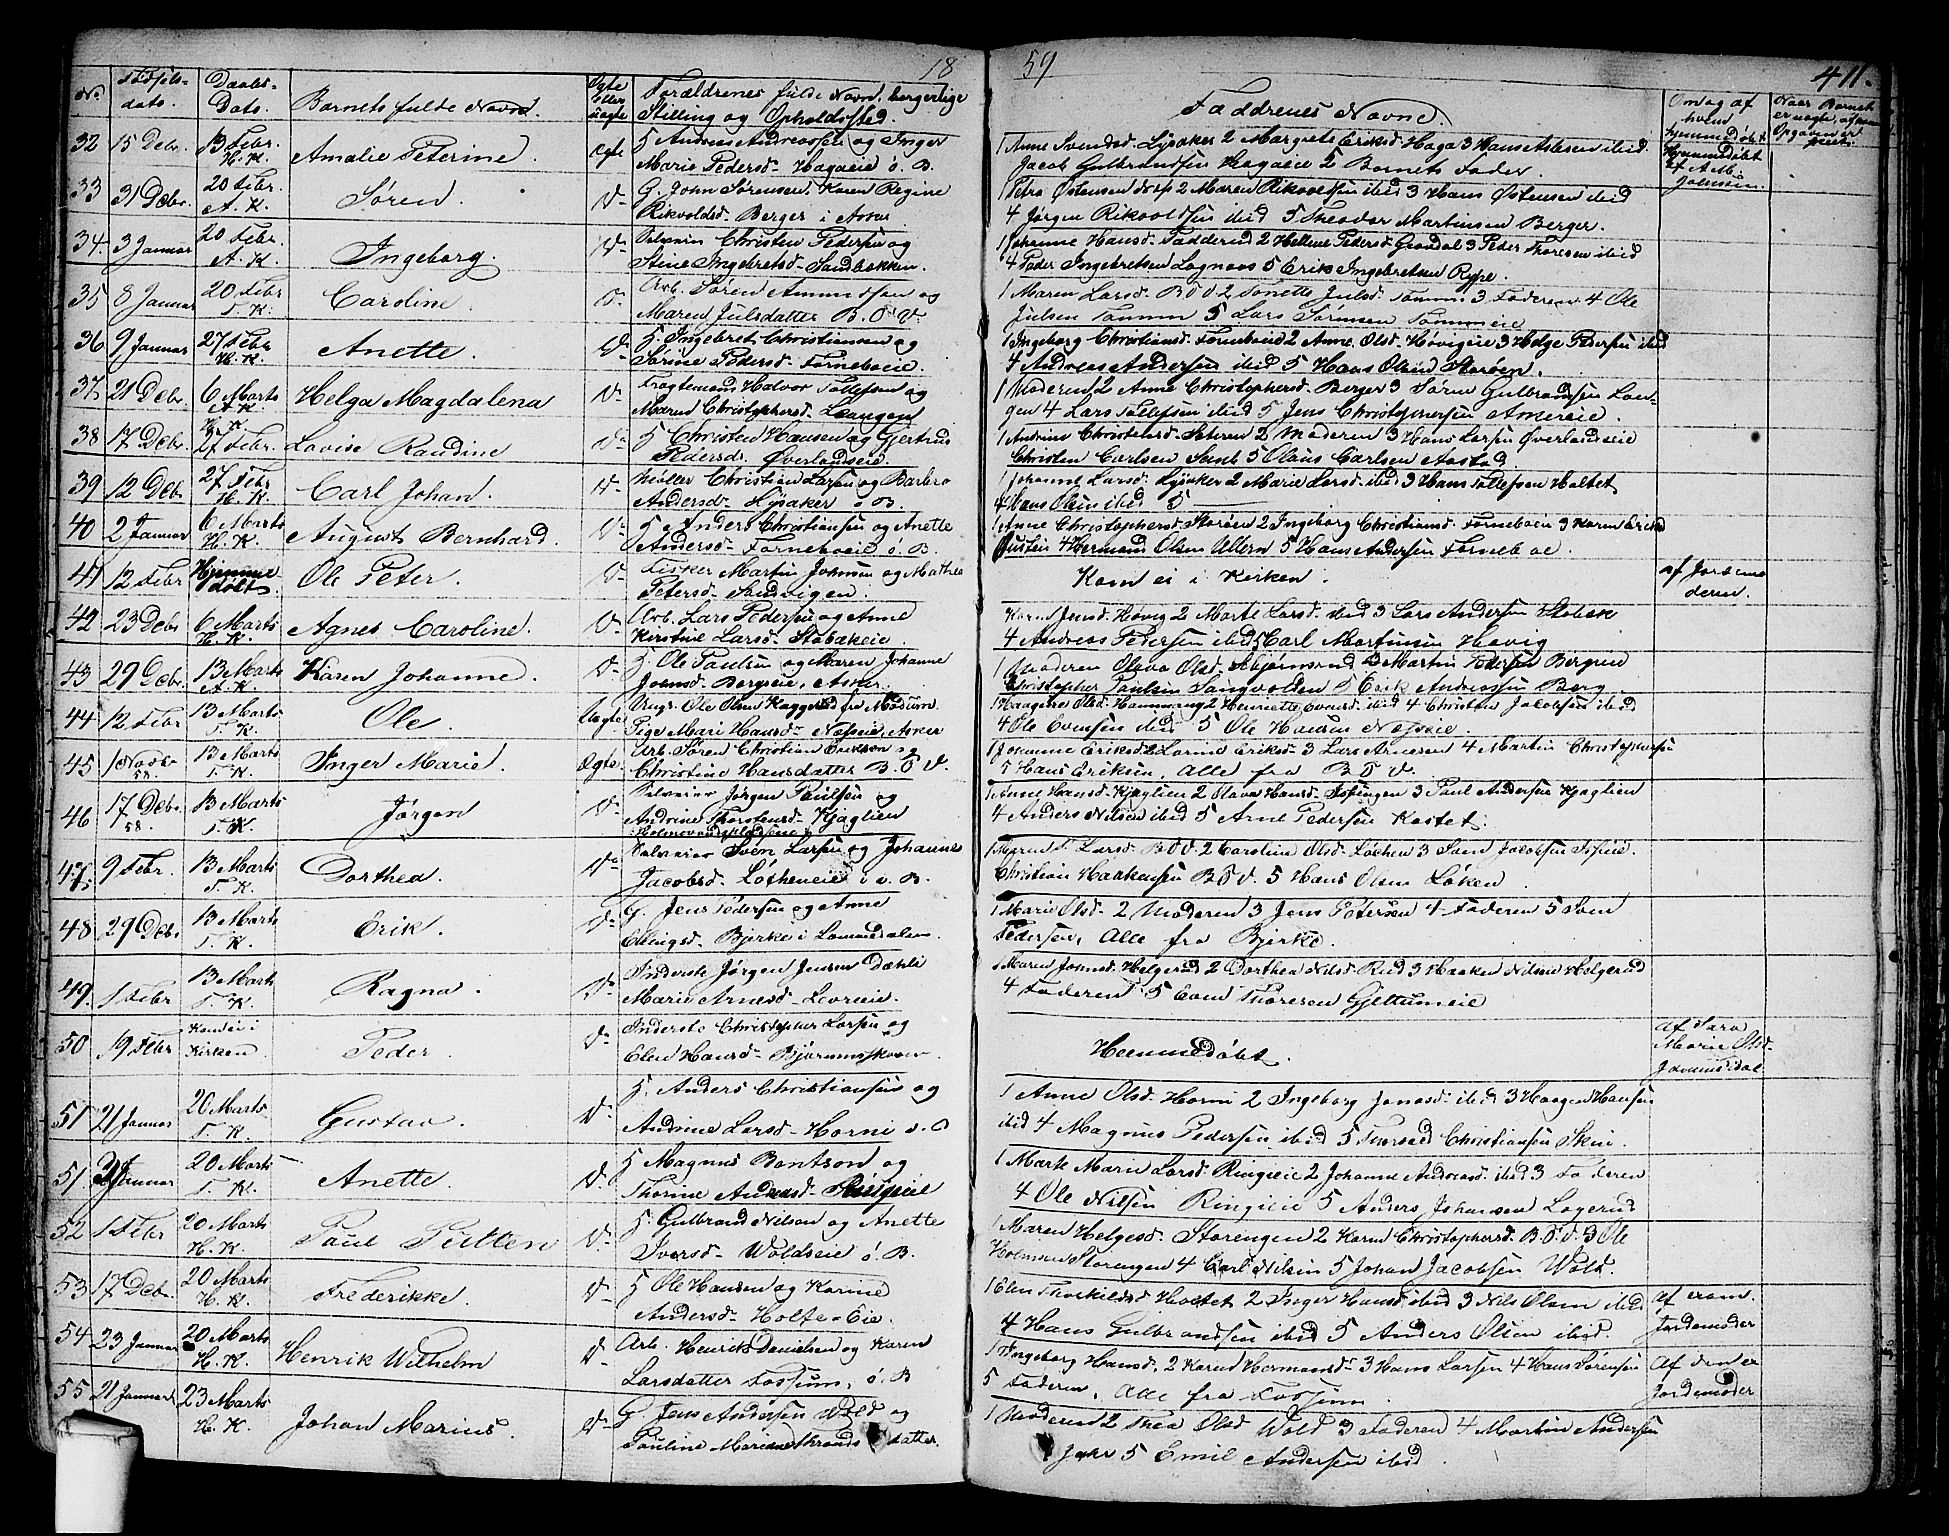 18
59
411.
No.
Fødsels-
dato.
Daabs-
Dato.
Barnets fulde Navn.
Ægte
Eller
uægte
Forældrenes fulde Navn, borgerlige
Stilling og Opholdssted.
Faddrenes Navne.
Om og af
hvem
hjemmedøbt
Naar Barnet
er uægte, af hvem
Opgaven er
skeet.
32 15 Debr. 13 Febr. H. K. Amalie Peterine. Ægte G. Andreas Andreassen og Inger
Marie Pedersd- Hagaeie ø. B.
1 Anne Svendsd- Lysaker 2 Margrete Eriksd- Haga 3 Hans Aslesen ibid
Jacob Gulbrandsen Hagaeie 5 Barnets Fader.
Hjemmedøbt
33 31 Debr. 20 Febr. A. K. Søren. D- G. John Sørensen, Karen Regine
Rikvoldsd- Berger i Asker
1 Petra Østensen 2 Maren Rikvoldsen ibid 3 Hans Østensen ibid
4 Jørgen Rikvoldsen ibid 5 Theodor Martinsen Berger.
34. 3 Januar 20 Febr. A. K. Ingeborg. D- Selveier Christen Pedersen og
Stine Ingebretsd- Sandbakken.
1 Johanne Hansd- Fadderud 2 Hellene Pedersd- Grøndal 3 Peder Thoresen ibid
4 Peder Ingebretsen Lognaas 5 Erik Ingebretsen Rype.
35 8 Januar 20 Febr. T. K. Caroline. D- Arb. Søren Amundsen og
Maren Julsdatter B. O. V.
1 Maren Larsd- B O V 2 Tonette Julsd- Tomm 3 Faderen 4 Ole
Julsen Tomm 5 Lars Sørensen Tommeie
36 9 Januar 27 Febr. H. K. Anette. D- G. Ingebret Christiansen og
Sørine Pedersd- Forneboeie.
1 Ingeborg Christiansd- Forneboeid 2 Anne Olsd- Høvigeie 3 Helge Pedersen ibid
4 Andreas Andersen ibid 5 Hans Olsen Storøen.
37 21 Debr. 6 Marts A. K. Helga Magdalena D- Fragtemand Halvor Tollefsen og
Maren Christophersd- Leangen
1 Moderen 2 Anne Christophersd- Berger 3 Søren Gulbrandsen Lean-
gen 4 Lars Tollefsen ibid 5 Jens Christophersen Arneseie.
38 17 Debr. H. K. 27 Febr. Lovise Randine D- G. Christen Hansen og Gjertrud
Pedersd. Øverlandseie.
1 Andrine Christensd- Sateren 2 Moderen 3 Hans Larsen Øverlandseie
Christen Carlsen Samt 5 Olaus Carlsen Aastad
39 12 Debr. 27 Febr. H. K. Carl Johan. D- Møller Christian Larsen og Barbro
Andersd- Lysaker ø B.
1 Johanne Larsd- Lysaker 2 Marie Larsd- ibid 3 Hans Tollefsen Holtet
4 Hans Olsen ibid 5
40 2 Januar 6 Marts H. K. August Bernhard. D- G Anders Christiansen og Anette
Andersd- Forneboeie ø. B.
1 Anne Christophersd- Storøen 2 Ingeborg Christiansd- Forneboeie 3 Karen
4 Hermand Olsen Ullern 5 Hans Andersen Forneboe.
41 12 Febr Hjemme
døbt. Ole Peter. D- Fisker Martin Johnsen og Mathea
Petersd- Sandvigen.
Kom ei i Kirken.
af Jordemo
deren.
42 23 Debr 6 Marts H. K. Agnes Caroline. D- Arb. Lars Pedersen og Anne
Kerstine Larsd- Stabækeie
Karen Jensd- Høvig 2 Marte Larsd- ibid 3 Lars Andersen Stabæk
4 Andreas Pedersen ibid 5 Carl Martinsen Høvig
43 29 Debr. 13 Marts A. K. Karen Johanne. D- G. Ole Paulsen og Maren Johanne
Johnsd- Bergseie, Asker.
1 Moderen Olava Olsd- Asbjørnsrud 3 Martin Pedersen Bergseie
Christopher Paulsen Sangvolden 5 Erik Andreassen Berg.
44 12 Febr 13 Marts T. K. Ole. Uægte Ungk. Ole Olsen Kaggerud fra Modum
Pige Mari Hansd- Næseie, Asker
1 Haagine Olsd- Hammvang 2 Henriette Evensd- ibid 4 Christen Jacobsen ibid
4 Ole Evensen ibid 5 Ole Hansen Næseie.
45 1 Novbr 58. 13 Marts T. K. Inger Marie. Ægte. Arb. Søren Christian Erikson og
Christine Hansdatter B. O V.
1 Johanne Eriksd- 2 Lorine Eriksd- 3 Lars Arnesen 4 Martin Christophersen
5 Hans Eriksen. Alle fra B O V.
46 17 Debr. 58. 13 Marts T. K. Jørgen D- Selveier Jørgen Paulsen og
Andrine Thorstensd- Kjaglien
1 Anne Hansd- Kjaglien 2 Olava Hansd- Isingen 3 Paul Andersen Kjaglien
4 Anders Nilsen ibid 5 Arne Pedersen Kastet.
47 9 Febr. 13 Marts T. K. Dorthea. D- Selveier Sven Larsen og Johanne
Jacobsd- Løkeneie i v. B.
1 Maren T Larsd- B O V- 2 Caroline Olsd- Løken 3 Sam Jacobsen Isieie.
Christian Haakensen B O V. 5 Hans Olsen Løken
48 29 Debr. 13 Marts T. K. Erik. D- G. Jens Pedersen og Anne
Ellingsd- Bjerke i Lommedalen
1 Marie Olsd- 2 Moderen 3 Jens Petersen 4 Faderen 5 Sven
Pedersen, Alle fra Bjerke.
49. 1 Febr 13 Marts T. K. Ragna. D- Inderste Jørgen Jensen Dæhli
Marie Arnesd- Levreeie.
1 Maren Johnsd- Helgerud 2 Dorthea Nilsd- Rud 3 Haaken Nilsen Helgerud
4 Faderen 5 Even Thoresen Gjettumeie
50 19 Febr Kom ei i
Kirken. Peder. D- Inderste Christopher Larsen og
Elen Hansd- Bjørumskoven.
Hjemmedøbt.
af Sara
Marie Olsd-
51 21 Januar 20 Marts T. K. Gustav. D- G. Anders Christiansen og
Andrine Larsd- Horni
1 Anne Olsd- Horni 2 Ingeborg Jonasd- ibid 3 Haagen Hansen
ibid 4 Magnus Pedersen ibid 5 Thorvald Christiansen Skui.
51 Januar 20 Marts T. K. Anette. D- G Magnus Bentson og
Thorine Andreasd- Ringieie
1 Marte Marie Larsd- Ringieie 2 Johanne Andreasd- ibid 3 Faderen
4 Ole Nilsen Ringieie 5 Anders Johansen Løgerud
52 1 Febr 20 Marts H. K. Paul Petter D- G. Gulbrand Nilson og Anette
Iversd- Woldseie ø. B.
1 Maren Helgesd- Storengen 2 Karen Christophersd- B. O V 3 Ole
Holmsen Storengen 4 Carl Nilsen 5 Johan Jacobsen Wold.
53 17 Debr. 20 Marts H. K. Frederikke. D- G Ole Hansen og Karine
Andersd- Holte-Eie
1 Elen Thorkildsd Holtet 2 Inger Hansd- ibid 3 Nils Olsen ibid
4 Hans Gulbrandsen ibid 5 Anders Olsen ibid.
af exam.
Jordemoder
54 23 Januar 20 Marts H. K. Henrik Wilhelm D- Arb. Henrik Danielsen og Karen
Larsdatter Fossum, ø. B
1 Ingeborg Hansd- 2 Karen Hermansd- 3 Hans Larsen 4 Hans Sørensen
5 Faderen, Alle fra Fossum.
af den ex
Jordemoder
55 21 Januar 23 Marts H. K. Johan Marius. D- G Jens Andersen Wold og
Pauline Mariene Thrandsdatter.
1 Moderen 2 Thea Olsd Wold 3 Faderen 4 Martin Andersen
Jahr 5 Emil Andersen ibid